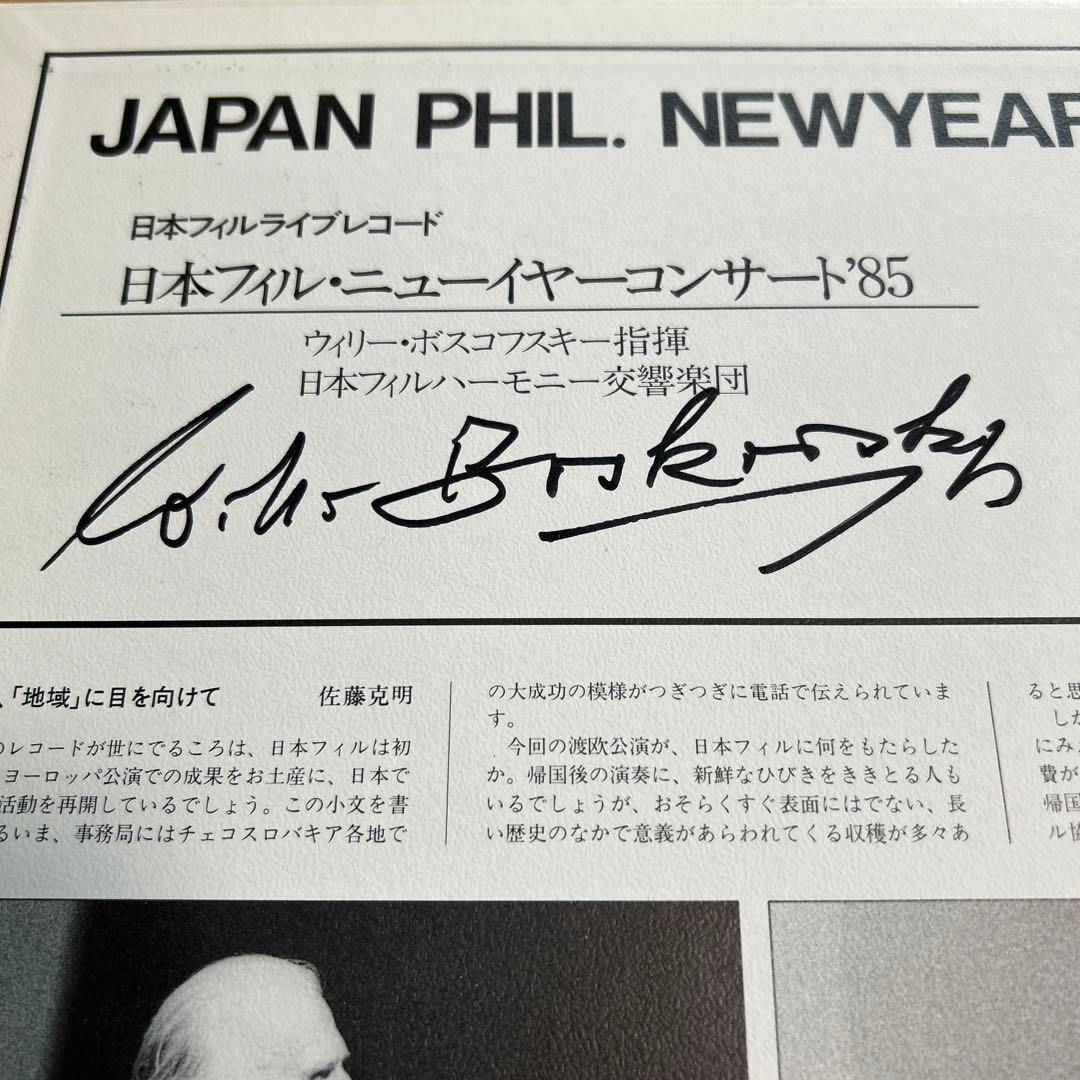 JAPAN PHIL. NEWYEAR
日本フィルライブレコード
日本フィル・ニューイヤーコンサート'85
ウィリー・ボスコフスキー指揮
日本フィルハーモニー交響楽団
Willi Boskovsky
「地域」に目を向けて
佐藤克明
のレコードが世にでるころは、日本フィルは初
ヨーロッパ公演での成果をお土産に、日本で
活動を再開しているでしょう。この小文を書
るいま、事務局にはチェコスロバキア各地で
の大成功の模様がつぎつぎに電話で伝えられていま
す。
今回の渡欧公演が、日本フィルに何をもたらした
か。帰国後の演奏に、新鮮なひびきをききとる人も
いるでしょうが、おそらくすぐ表面にはでない、長
い歴史のなかで意義があらわれてくる収穫が多々あ
ると思
しか
にみ
費が
帰国
ル協